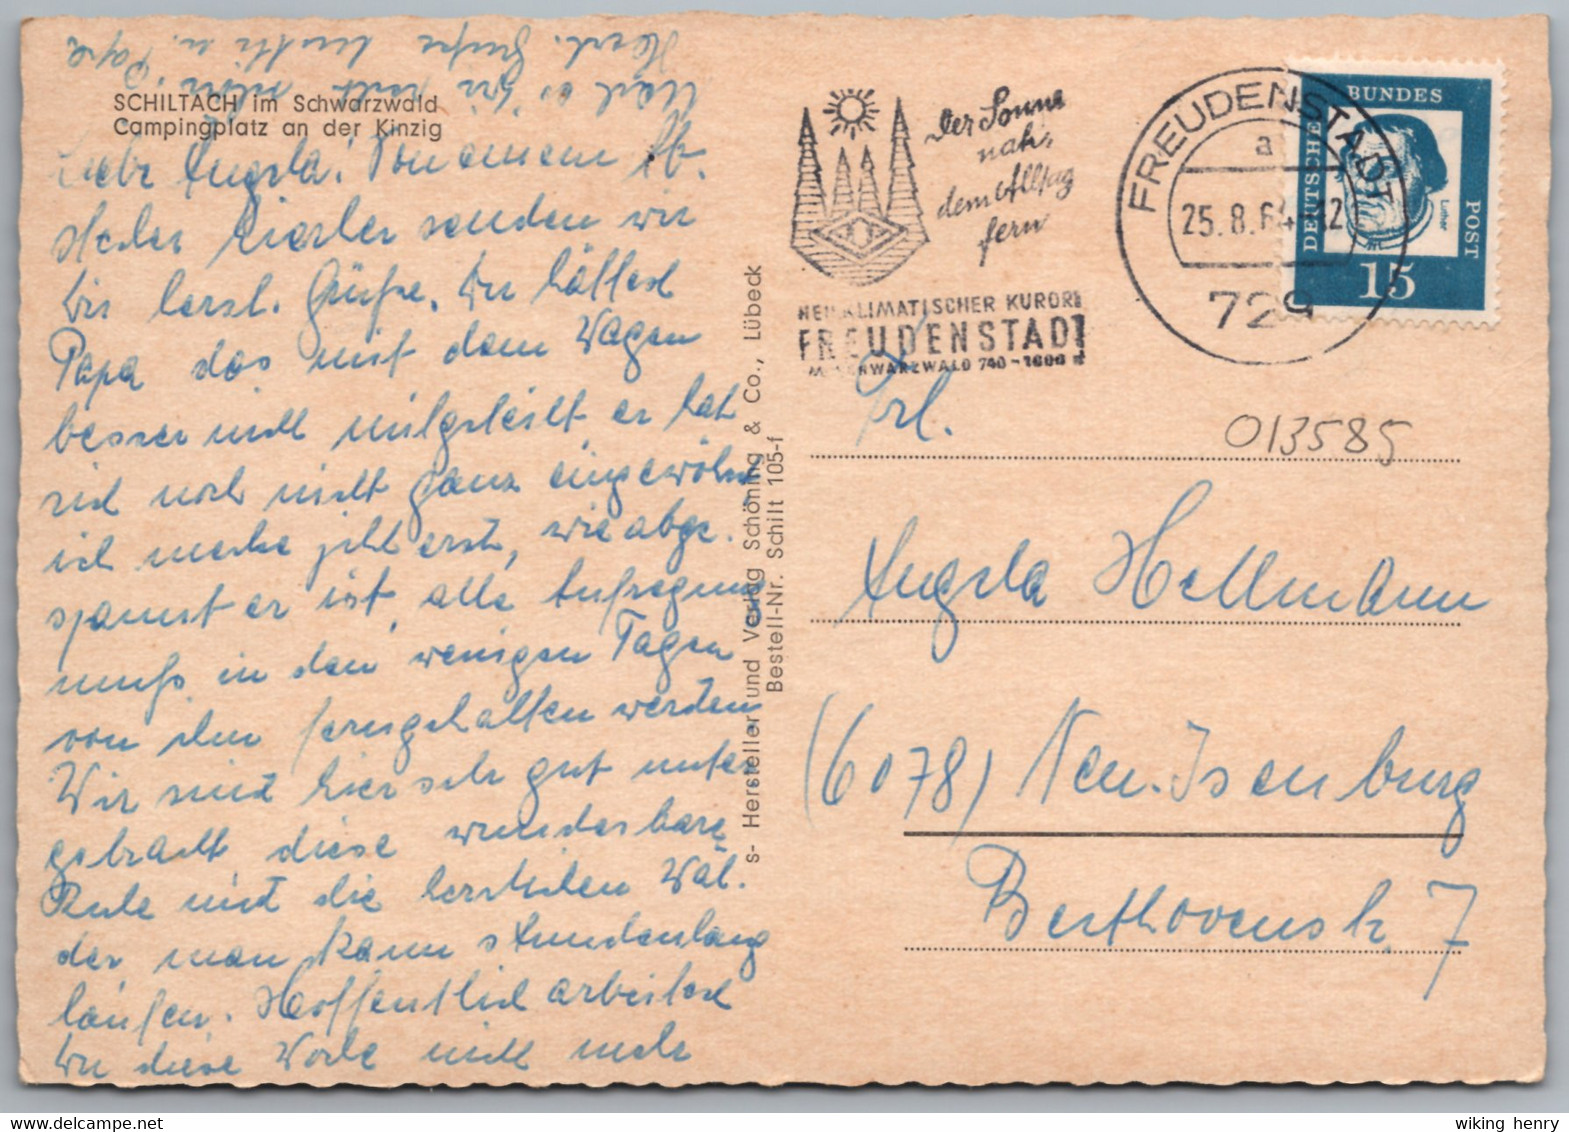 SCHILTACH im Schwarzwald
Campingplatz an der Kinzig
Liebe Angela! Von einem Ab-
stecher hierher senden wir
Dir herzl. Grüße. Du hättest
Papa das mit dem Wagen
besser nicht mitgeteilt er hat
sich noch nicht ganz eingewöhnt,
ich merke jetzt erst, wie abge-
spannt er ist, alle Aufregung
muß in den wenigen Tagen
von ihm ferngehalten werden
Wir sind hier sehr gut unter
gebracht diese wunderbare
Ruhe und die herrlichen Wäl-
der man kann stundenlang
laufen. Hoffentlich arbeitest
Du diese Woche nicht mehr
weil es Dir nicht
Herzl. Grüße Mutti u. Papa
s- Hersteller und Verlag Schöning & Co., Lübeck
Bestell-Nr. Schilt 105-f
Der Sonne
nah,
dem Alltag
fern
HEILKLIMATISCHER KURORT
FREUDENSTADT
SCHWARZWALD 740-1000 m
FREUDENSTADT
a
25.8.64-12
729
DEUTSCHE
BUNDES
POST
Luther
15
013585
Frl.
Angela Hellmann
(6078) Neu-Isenburg
Beethovenstr. 7
wiking henry